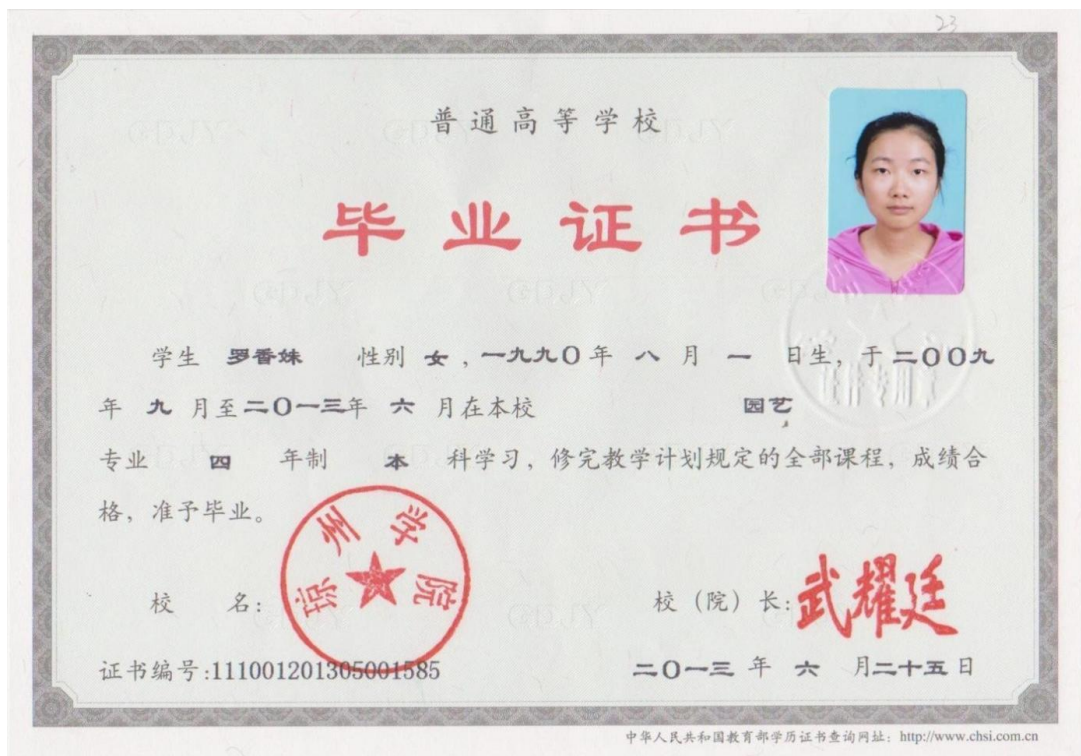 23
普通高等学校
毕业证书
学生 罗香妹 性别 女,一九九〇年 八 月 一 日生,于二〇〇九
年 九 月至二〇一三年 六 月在本校 园艺,
专业 四 年制 本 科学习,修完教学计划规定的全部课程,成绩合
格,准予毕业。
琼州学院
校 名: 校(院)长:武耀廷
证书编号:111001201305001585 二〇一三 年 六 月二十五日
中华人民共和国教育部学历证书查询网址:http://www.chsi.com.cn